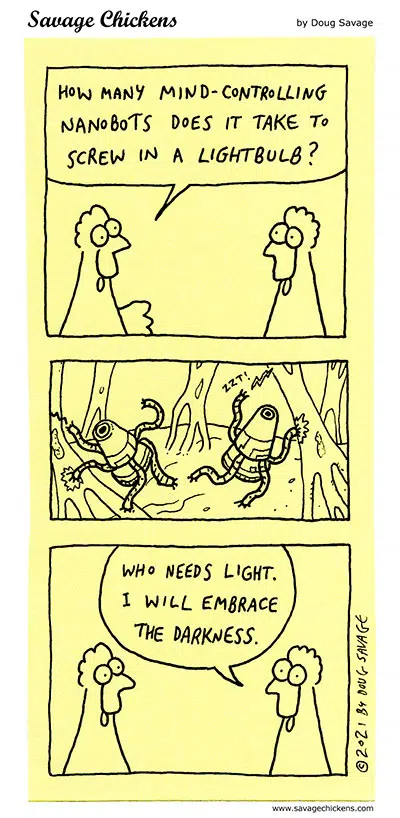 Savage Chickens
by Doug Savage
HOW MANY MIND-CONTROLLING
NANOBOTS DOES IT TAKE TO
SCREW IN A LIGHTBULB?
ZZT!
WHO NEEDS LIGHT.
I WILL EMBRACE
THE DARKNESS.
©2021 BY DOUG SAVAGE
www.savagechickens.com